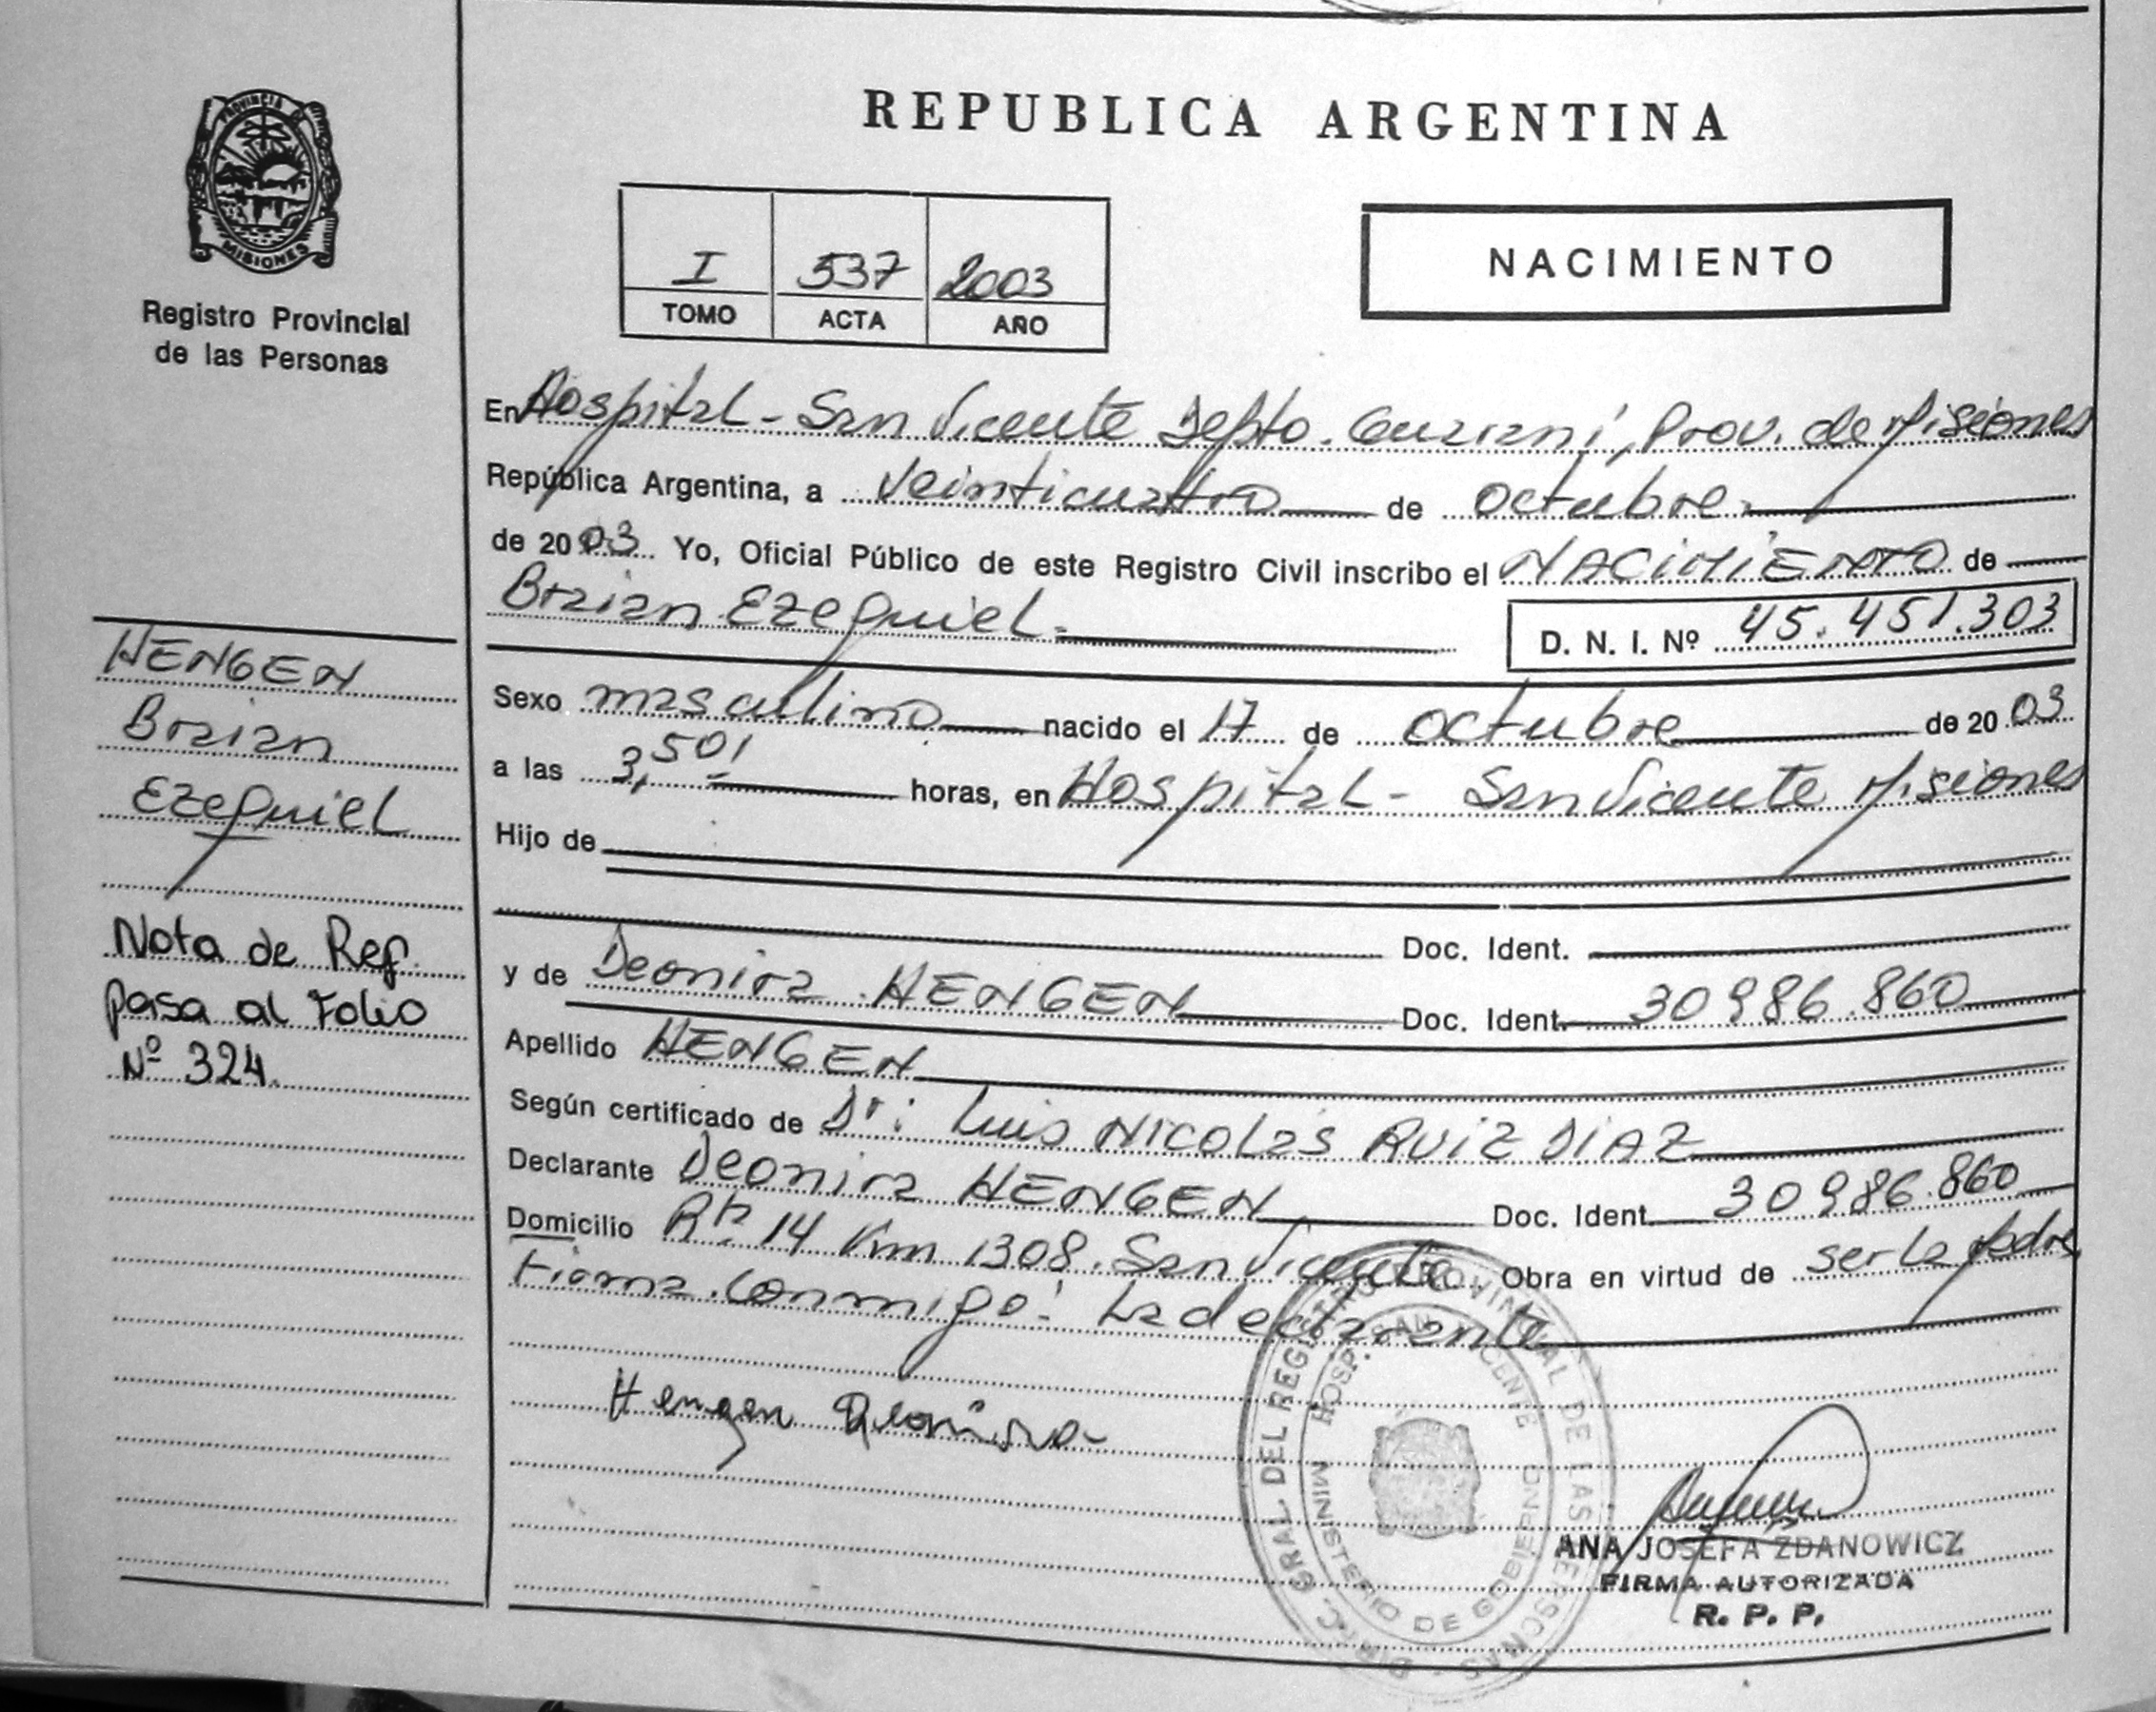 PROVINCIA
MISIONES
Registro Provincial
de las Personas
HENGEN
Braian
Ezequiel
Nota de Ref.
pasa al Folio
Nº 324.
REPUBLICA ARGENTINA
I 537 2003
TOMO ACTA AÑO
NACIMIENTO
En Hospital - San Vicente Depto. Guaraní, Prov. de Misiones
República Argentina, a Veinticuatro de octubre
de 2003 Yo, Oficial Público de este Registro Civil inscribo el NACIMIENTO de
Braian Ezequiel. D. N. I. Nº 45.451.303
Sexo masculino nacido el 17 de octubre de 2003
a las 3,50' horas, en Hospital - San Vicente Misiones
Hijo de
Doc. Ident.
y de Deonira HENGEN Doc. Ident. 30986.860
Apellido HENGEN
Según certificado de Dr: Luis NICOLAS RUIZ DIAZ
Declarante Deonira HENGEN Doc. Ident. 30986.860
Domicilio Rta. 14 Km 1308. San Vicente. Obra en virtud de ser la
Firma conmigo: La declarante
Hengen Deonira
DIREC. GRAL DEL REGISTRO PROVINCIAL DE LAS PERSONAS
HOSP. SAN VICENTE
MINISTERIO DE GOBIERNO
ANA JOSEFA ZDANOWICZ
FIRMA AUTORIZADA
R. P. P.